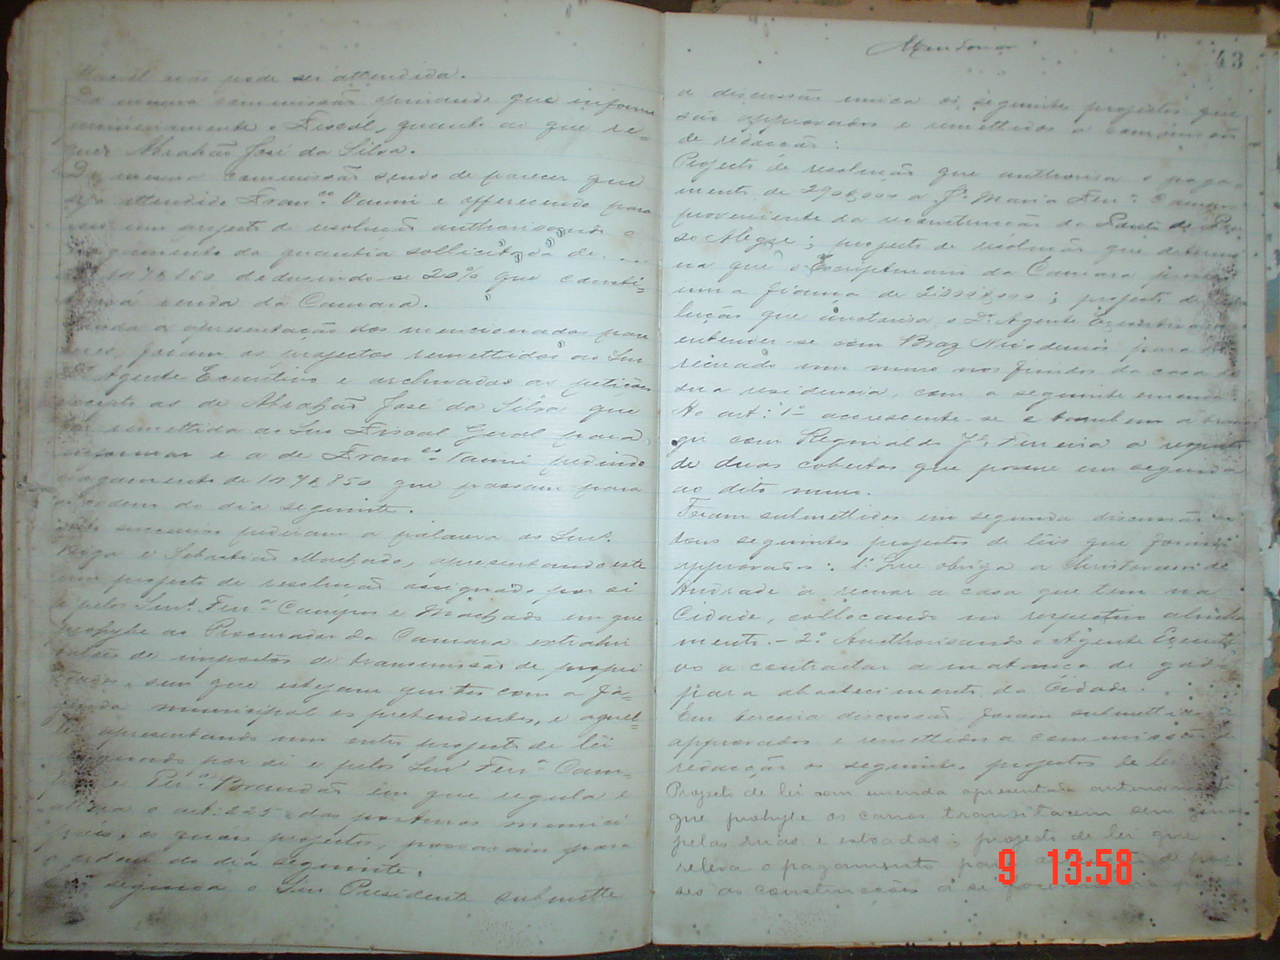 não pode ser attendida.
Da mesma commissão opinando que informe
novamente o Fiscal, quanto ao que re=
quer Abrahão José da Silva.
Da mesma commissão sendo de parecer que
seja attendido Fran.co Vanni e offerecendo para
um projecto de resolução authorisando o
pagamento da quantia sollicitada de
deduzindo-se 20% que consti=
renda da Camara.
a apresentação dos mencionados pare
ceres, foram os projectos remettidos ao Snr
Dr Agente Executivo e archivadas as petições
excepto as de Abrahão José da Silva que
foi remettida ao Snr Fiscal Geral para
informar e a de Fran.co Vanni pedindo
pagamento de que passam para
a ordem do dia seguinte.
pediram a palavra os Snrs.
Veiga e Sebastião Machado, apresentando este
um projecto de resolução assignado por si
e pelos Snrs. Ferr.a Campos e Machado em que
prohybe ao Procurador da Camara extrahir
talões de impostos de transmissão de proprie
dades, sem que estejam quites com a fa=
zenda municipal os pretendentes, e aquel=
le apresentando um outro projecto de lei
assignado por si e pelos Snrs Ferr.a Cam=
pos e Brandão em que regula e
altera o art: 225 das posturas munici
paes, os quaes projectos, passaram para
a ordem do dia seguinte.
Em seguida o Snr Presidente submette
43
a discussão unica os seguintes projectos que
são approvados e remettidos a commissão
de redacção:
Projecto de resolução que authorisa o paga-
mento de 290$000 a Je Maria Ferr.a
proveniente da reconstrucção da Ponte de Pou
so Alegre; projecto de resolução que determi
na que o Escripturario da Camara preste
uma fiança de 2:000$000; projecto de reso
lução que authorisa o Dr. Agente Executivo a
entender-se com Braz Nicodemos para ser
recuado um muro nos fundos da casa de
sua residencia, com a seguinte emenda
Ao art: 1o accrescente-se e tambem a
com Reginaldo Je Ferreira a respeito
de duas cobertas que possue em seguida
ao dito muro.
Foram submettidos em segunda discussão os
seguintes projectos de leis que foram
approvados: 1o Que obriga a Christovam de
Andrade a recuar a casa que tem na
Cidade, collocando no respectivo alinha
mento - 2o Authorisando o Agente Executi
vo a contractar a matança de gado
para abastecimento da Cidade.
Em terceira discussão foram submettidos
approvados e remettidos a commissão de
redacção os seguintes projectos de lei
Projecto de lei com emenda apresentada anteriormente
que prohybe os carros transitarem sem guia
pelas ruas e estradas; projecto de lei que
releva o pagamento para
as construcções a se
9 13:58